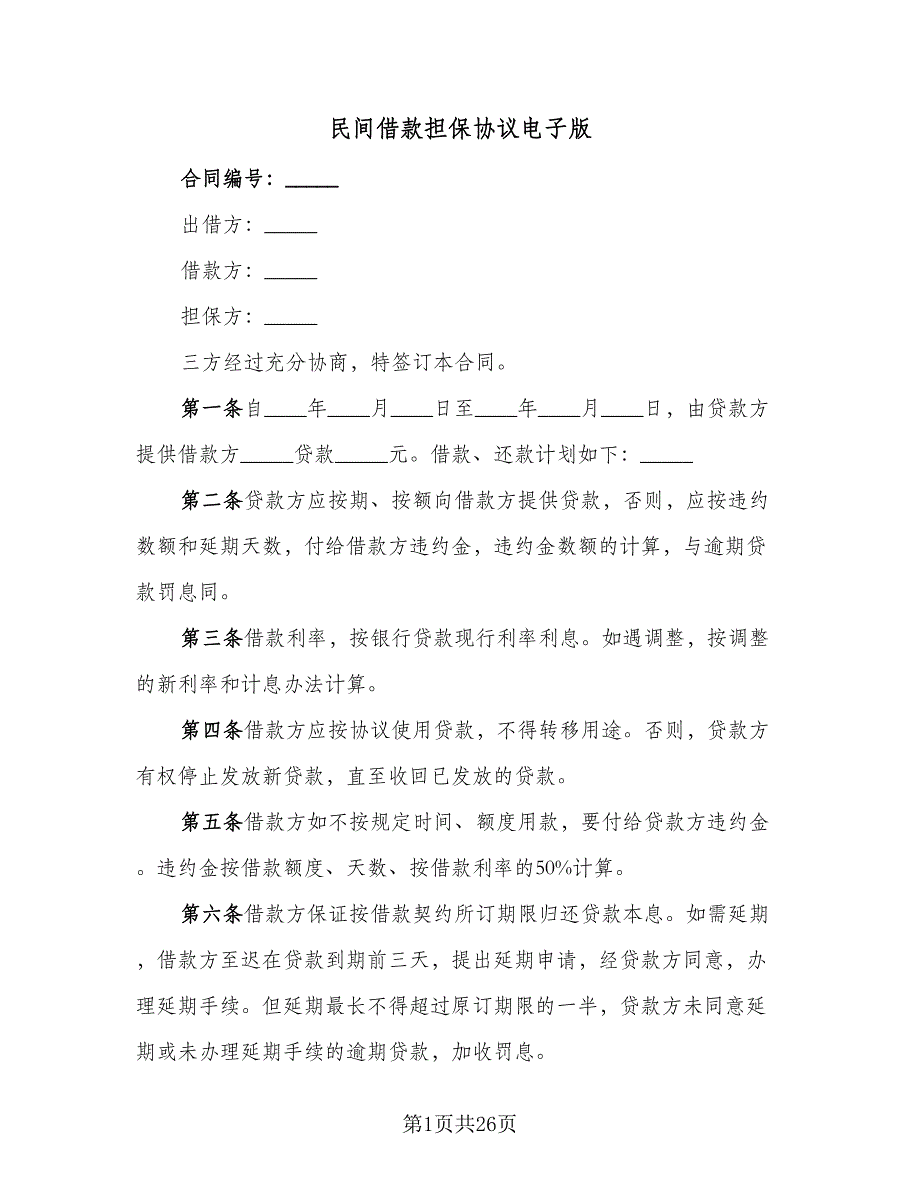 民间借款担保协议电子版
合同编号：_____
出借方：_____
借款方：_____
担保方：_____
三方经过充分协商，特签订本合同。
第一条自____年____月____日至____年____月____日，由贷款方
提供借款方_____贷款_____元。借款、还款计划如下：_____
第二条贷款方应按期、按额向借款方提供贷款，否则，应按违约
数额和延期天数，付给借款方违约金，违约金数额的计算，与逾期贷
款罚息同。
第三条借款利率，按银行贷款现行利率利息。如遇调整，按调整
的新利率和计息办法计算。
第四条借款方应按协议使用贷款，不得转移用途。否则，贷款方
有权停止发放新贷款，直至收回已发放的贷款。
第五条借款方如不按规定时间、额度用款，要付给贷款方违约金
。违约金按借款额度、天数、按借款利率的50%计算。
第六条借款方保证按借款契约所订期限归还贷款本息。如需延期
，借款方至迟在贷款到期前三天，提出延期申请，经贷款方同意，办
理延期手续。但延期最长不得超过原订期限的一半，贷款方未同意延
期或未办理延期手续的逾期贷款，加收罚息。
第1页共26页